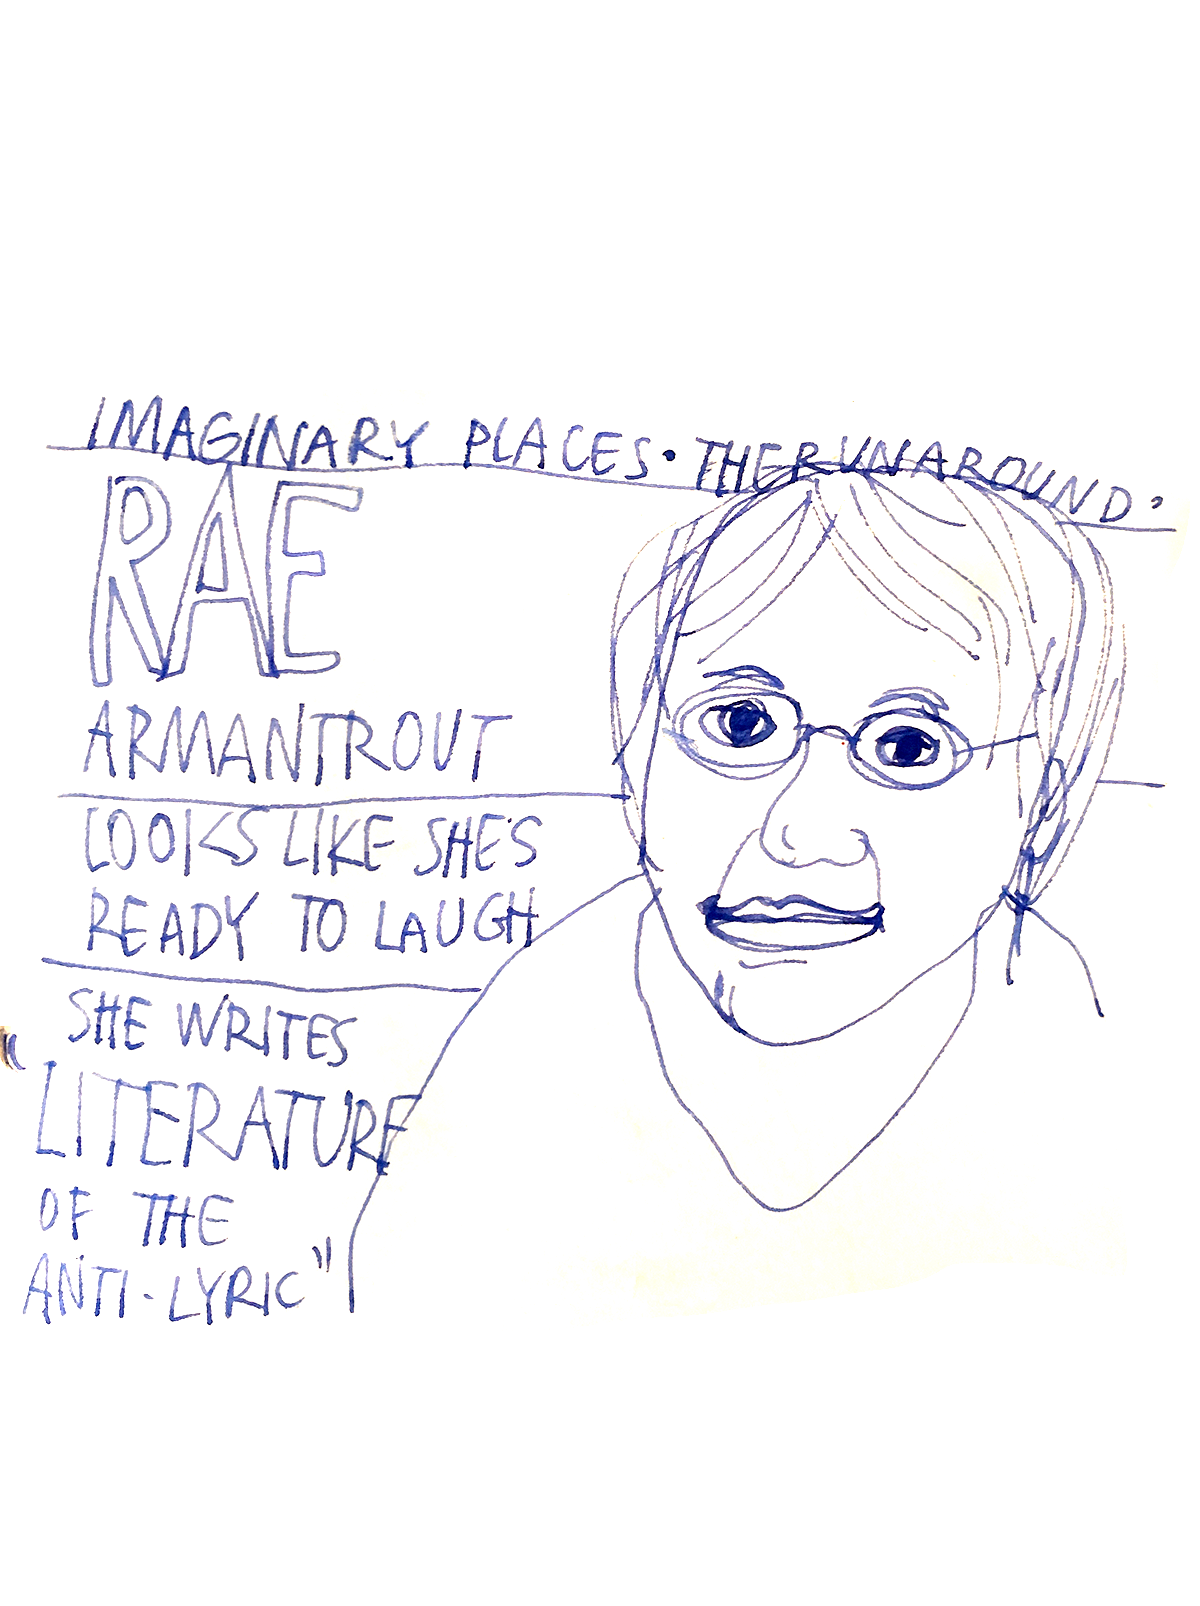 IMAGINARY PLACES • THE RUNAROUND •
RAE
ARMANTROUT
LOOKS LIKE SHE'S
READY TO LAUGH
SHE WRITES
"LITERATURE
OF THE
ANTI-LYRIC"